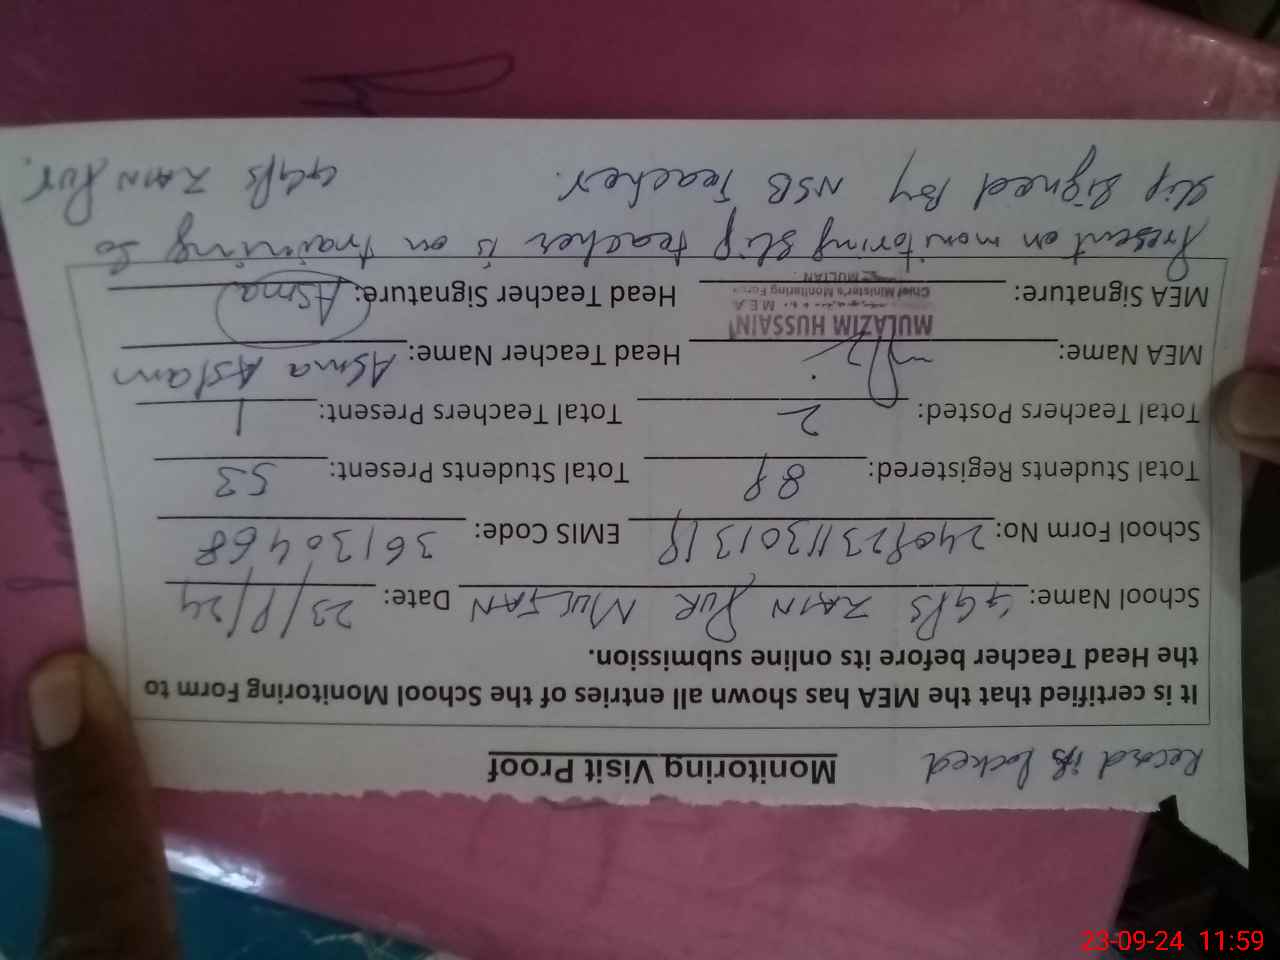 Record is locked
Monitoring Visit Proof
It is certified that the MEA has shown all entries of the School Monitoring Form to
the Head Teacher before its online submission.
School Name: GGPS ZAIN PUR MULTAN Date: 23/9/24
School Form No: 24092311301319 EMIS Code: 36130468
Total Students Registered: 89 Total Students Present: 53
Total Teachers Posted: 2 Total Teachers Present: 1
MEA Name: Head Teacher Name: Asma Aslam
MULAZIM HUSSAIN
M E A
Chief Minister's Monitoring Force
MULTAN.
MEA Signature: Head Teacher Signature: Asma
Present on monitoring slip teacher is on training so
slip signed By NSB Teacher. GGPS ZAIN PUR.
23-09-24 11:59